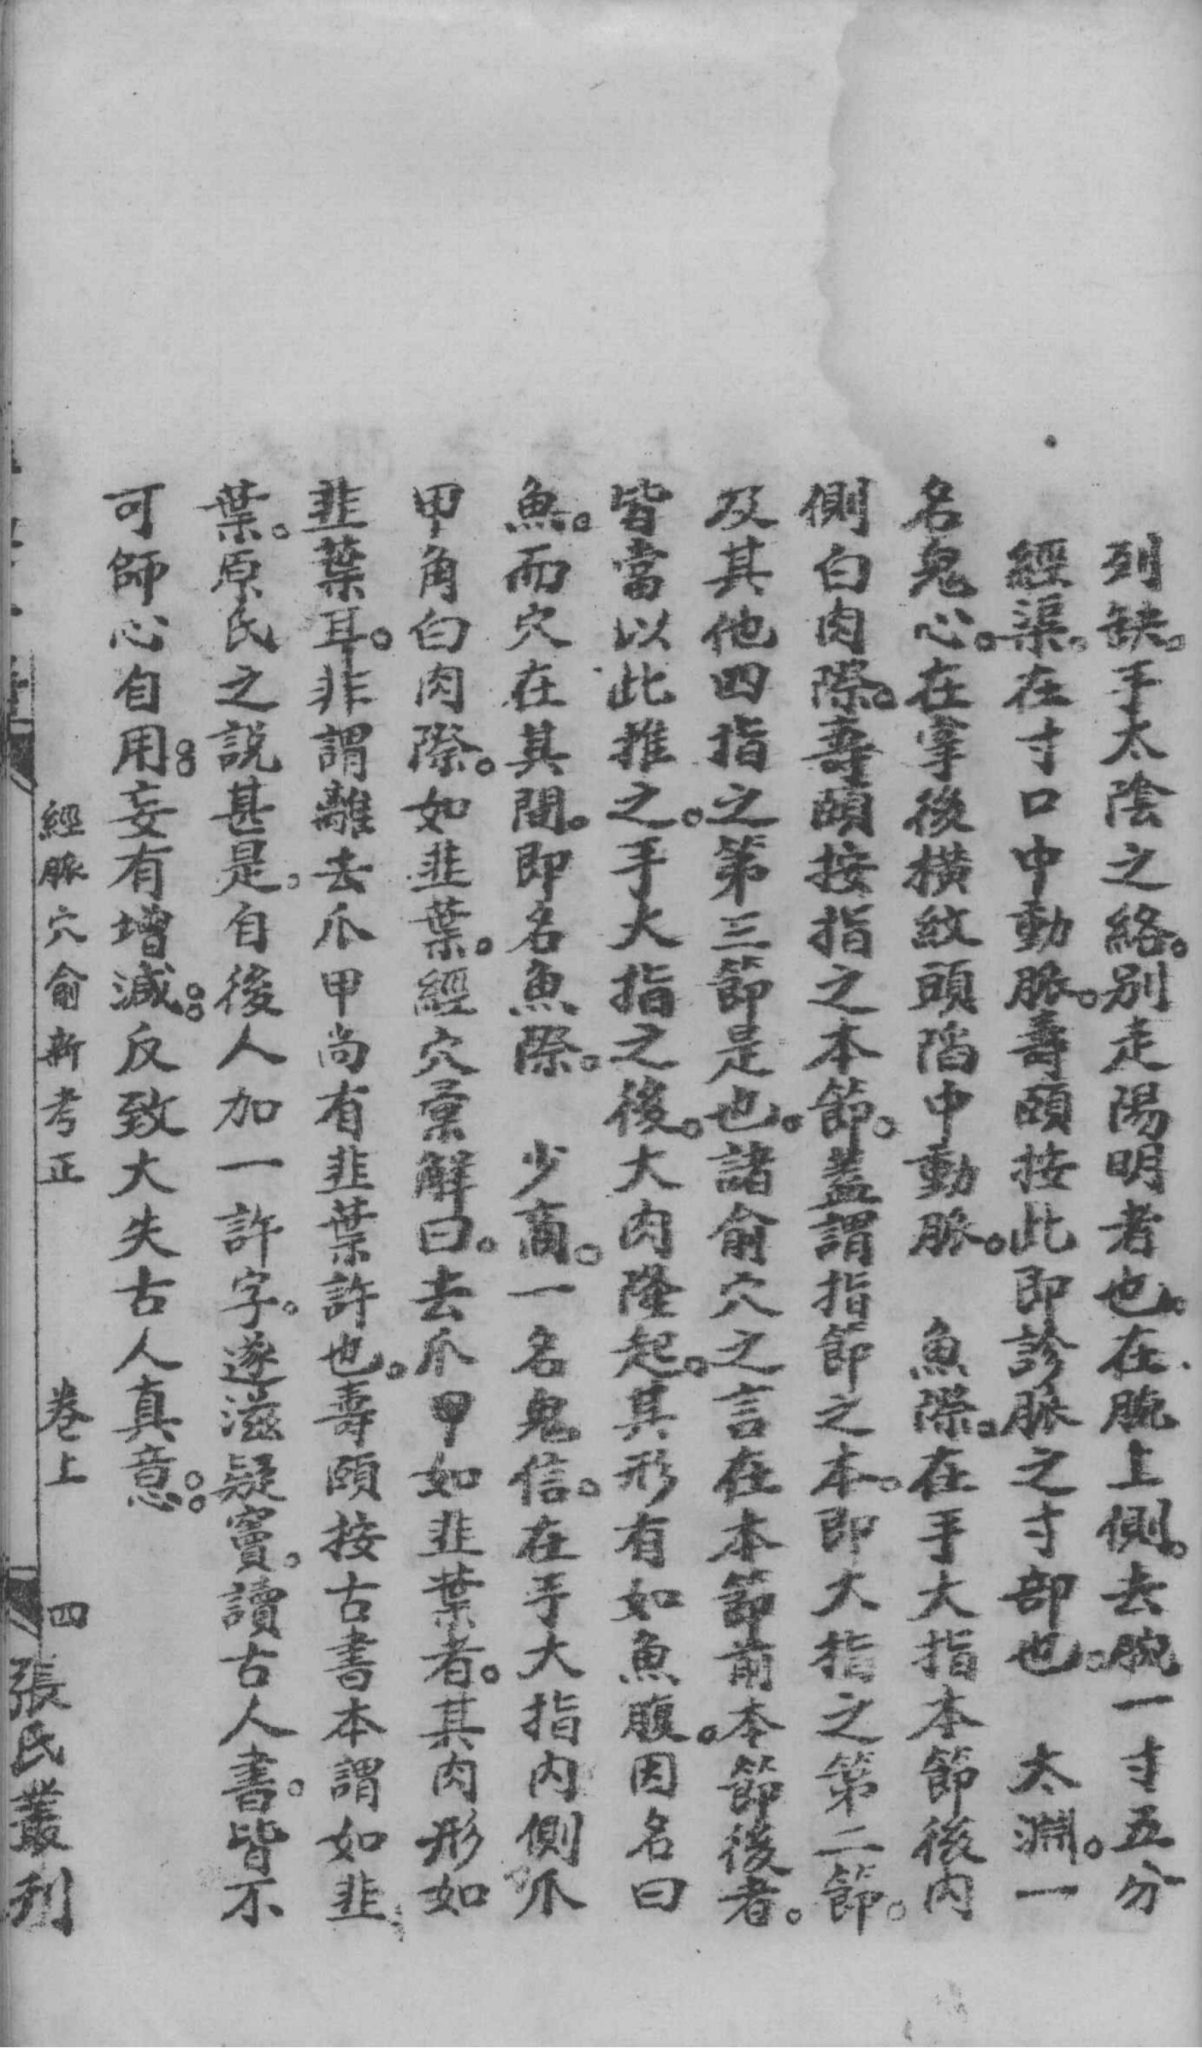 列缺。手太陰之絡。別走陽明者也。在腕上側。去腕一寸五分
經渠。在寸口中動脈。壽頤按此即診脈之寸部也。　太淵。一
名鬼心。在掌後橫紋頭陷中動脈。　魚際。在手大指本節後內
側白肉際。壽頤按指之本節。蓋謂指節之本。即大指之第二節。
及其他四指之第三節是也。諸俞穴之言在本節前本節後者。
皆當以此推之。手大指之後。大肉隆起。其形有如魚腹。因名曰
魚。而穴在其間。即名魚際。　少商。一名鬼信。在手大指內側爪
甲角白肉際。如韭葉。經穴彙解曰。去爪甲如韭葉者。其肉形如
韭葉耳。非謂離去爪甲尚有韭葉許也。壽頤按古書本謂如韭
葉。原氏之說甚是。自後人加一許字。遂滋疑竇。讀古人書。皆不
可師心自用。妄有增減。反致大失古人真意。
經脈穴俞新考正　卷上　四
張氏叢刊